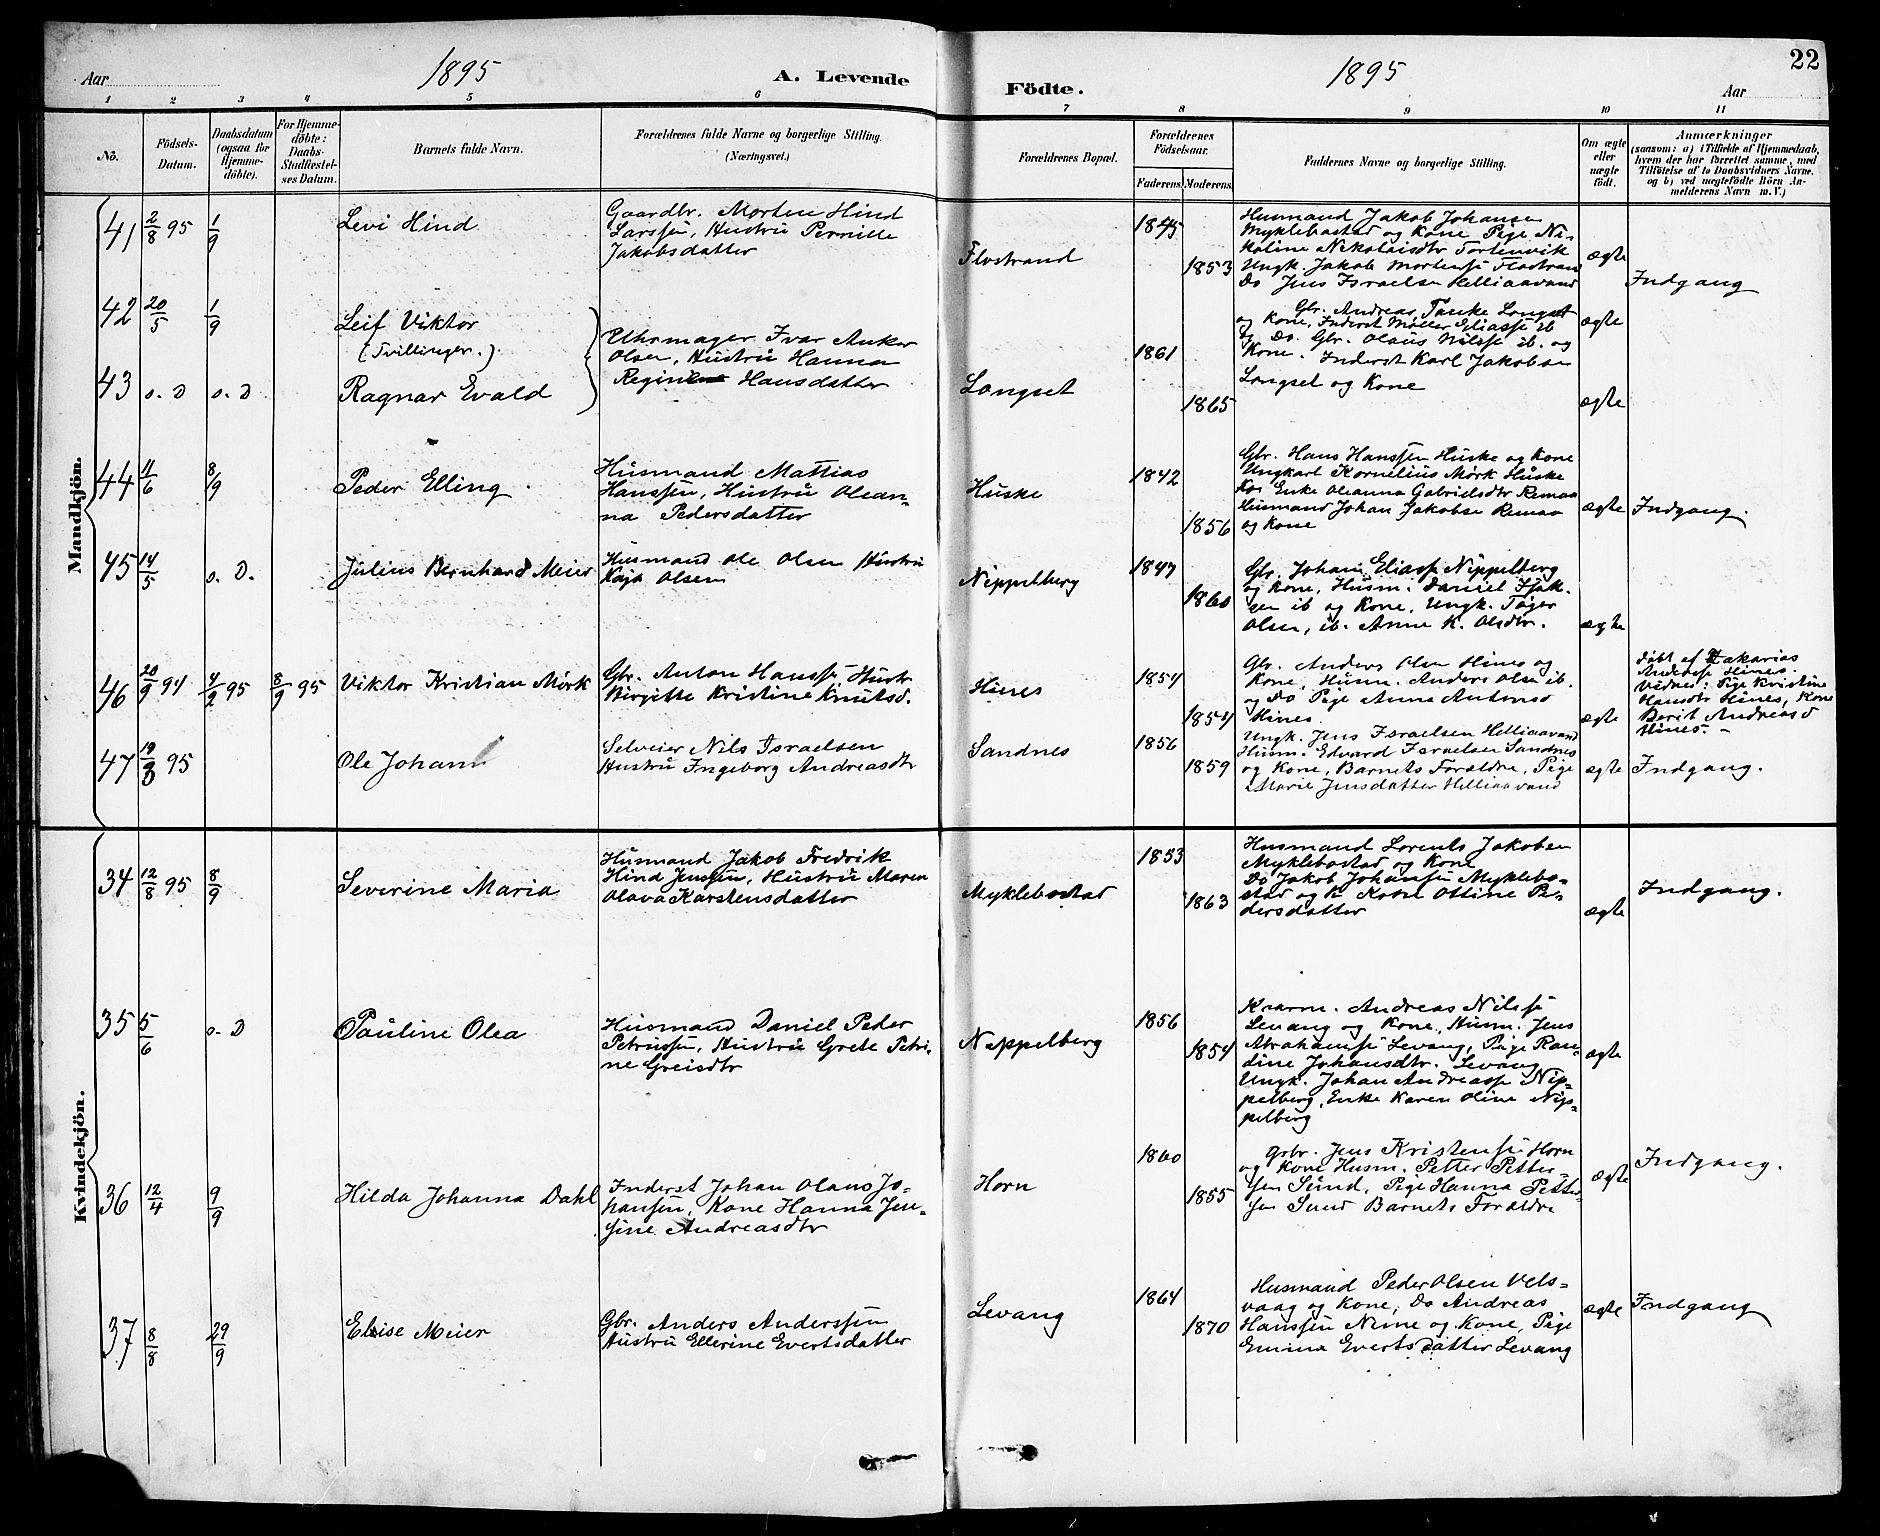 22
Aar 1895 A. Levende Födte. 1895 Aar
1 2 3 4 5 6 7 8 9 10 11
Nö.
Födsels-
Datum.
Daabsdatum
(ogsaa för
Hjemme-
döbte).
For Hjemme-
döbte:
Daabs-
Stadfæstel-
ses Datum.
Barnets fulde Navn.
Forældrenes fulde Navne og borgerlige Stilling.
(Næringsvei.)
Forældrenes Bopæl.
Forældrenes
Födselsaar.
Faderens. Moderens.
Faddernes Navne og borgerlige Stilling.
Om ægte
eller
uægte
födt.
Anmærkninger
(saasom: a) i Tilfælde af Hjemmedaab,
hvem der har forrettet samme, med
Tilföielse af to Daabsvidners Navne.
og b) ved uægtefödte Börn An-
melderens Navn m. V.)
Mandkjön.
41 2/8 95 1/9
Levi Hind
Gaardbr. Morten Hind
Larssen, Hustru Pernille
Jakobsdatter
Flostrand
1845
1853
Husmand Jakob Johansen
Myklebostad og Kone Pige Ni-
koline Nikolaisdtr Fortenvik
Ungk. Jakob Mortensse Flostran
Do Jens Israelsen Helliaavand
ægte
Indgang
42 20/5 1/9
Leif Viktor
(Tvillinger.)
43 o. D o. D
Ragnar Evald
Uhrmager Ivar Anker
Olsen, Hustru Hanna
Regine Hansdatter
Langset
1861
1865
Gbr. Andreas Tanke Langset
og Kone, Inderst Møller Eliasse ib
og Do. Gbr. Olaus Nilsse ib. og
Kone. Inderst Karl Jakobsen
Langset og Kone
ægte
ægte
44 11/6 8/9
Peder Elling
Husmand Mattias
Hanssen, Hustru Olean-
na Pedersdatter
Huske
1842
1856
Gbr. Hans Hanssen Huske og Kone
Ungkarl Kornelius Mørk Huske
Enke Oleanna Gabrielsdtr Remaa
Husmand Johan Jakobse Remaa
og Kone
ægte
Indgang.
45 14/5 o. D.
Julius Bernhard Meier
Husmand Ole Olsen Hustru
Kaja Olsen
Nippelberg
1847
1860
Gbr. Johan Eliasse Nippelberg
og Kone, Husm. Daniel Isak-
sen ib og Kone, Ungk. Tøger
Olsen, ib. Anne K. Olsdtr.
ægte
46 20/9 94 4/2 95 8/9 95
Viktor Kristian Mörk
Gbr. Anton Hansse, Hustr
Birgitte Kristine Knutsd.
Hines
1854
1854
Gbr. Anders Olsen Hines og
Kone, Husm. Anders Olsen ib.
og Do Pige Anna Antonsd
Hines.
ægte
döbt af Zakarias
Anderse Hines.
Vidner: Pige Kristine
Hansdtr Hines, Kone
Berit Andreasd
Hines. -
47 95
Ole Johan
Selveier Nils Israelsen
Hustru Ingeborg Andreasdtr
Sandnes
1856
1859
Ungk. Jens Israelsen Helliaavand
Husm. Edvard Israelsen Sandnes
og Kone, Barnets Forældre, Pige
Marie Jensdatter Helliaavand
ægte
Indgang.
Kvindekjön.
34 12/8 95 8/9
Severine Maria
Husmand Jakob Fredrik
Hind Jenssen, Hustru Maren
Olava Karstensdatter
Myklebostad
1853
1863
Husmand Lorents Jakobsen
Myklebostad og Kone
Do Jakob Johansen Myklebo-
stad og Kone Ottine Pe-
dersdatter
ægte
Indgang.
35 5/6 o. D
Pauline Olea
Husmand Daniel Peder
Petrussen, Hustru Grete Petri-
ne Greisdtr
Nippelberg
1856
1854
Kvarm. Andreas Nilsse
Levang og Kone, Husm. Jens
Abrahamse Levang, Pige Ran-
dine Johansdtr. Levang
Ungk. Johan Andreasse Nip-
pelberg, Enke Karen Oline Nip-
pelberg
ægte
36 12/4 9/9
Hilda Johanna Dahl
Inderst Johan Olaus Jo-
hansen, Kone Hanna Jen-
sine Andreasdtr
Horn
1860
1855
Gbr. Jens Kristense Horn
og Kone Husm. Petter Petter-
sen Sund, Pige Hanna Petter-
sen Sund Barnets Forældre
ægte
Indgang.
37 8/8 29/9
Elise Meier
Gbr. Anders Anderssen
Hustru Ellerine Evertsdatter
Levang
1864
1870
Husmand Peder Olsen Vels-
vaag og Kone, Do Andreas
Hanssen Neme og Kone, Pige
Emina Evertsdatter Levang
ægte
Indgang